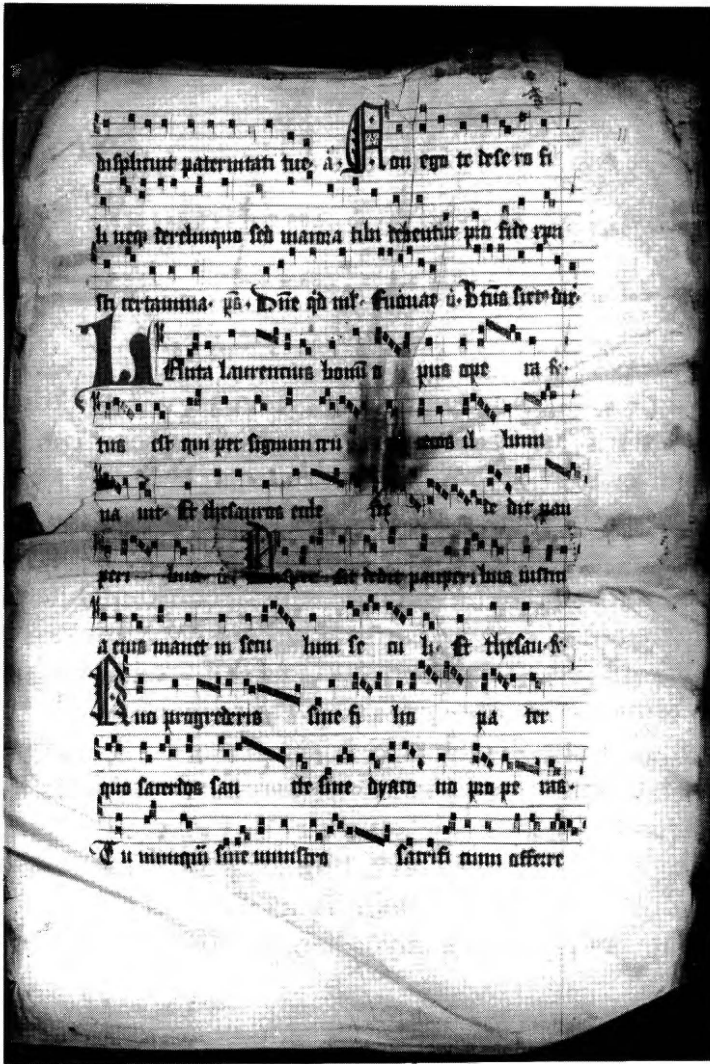 displicuit paternitati tue. a. Non ego te dese ro fi
li neqʒ derelinquo sed maiora tibi debentur pro fide xpi
sti certamina. ps. Dne qd ml. Euouae
Leuita laurentius bonū o pus ope ra t⁹
tus est qui per signum cru cecos il lumi
na uit. Et thesauros eccle sie de dit pau
peri bus. Dispersit dedit pauperibus iusti
a eius manet in secu lum se cu li. Et thesau. t⁹.
Quo progrederis sine fi lio pa ter
quo sacerdos san cte sine dyaco no pro pe ras.
Tu nunquā sine ministro sacrifi cium offerre